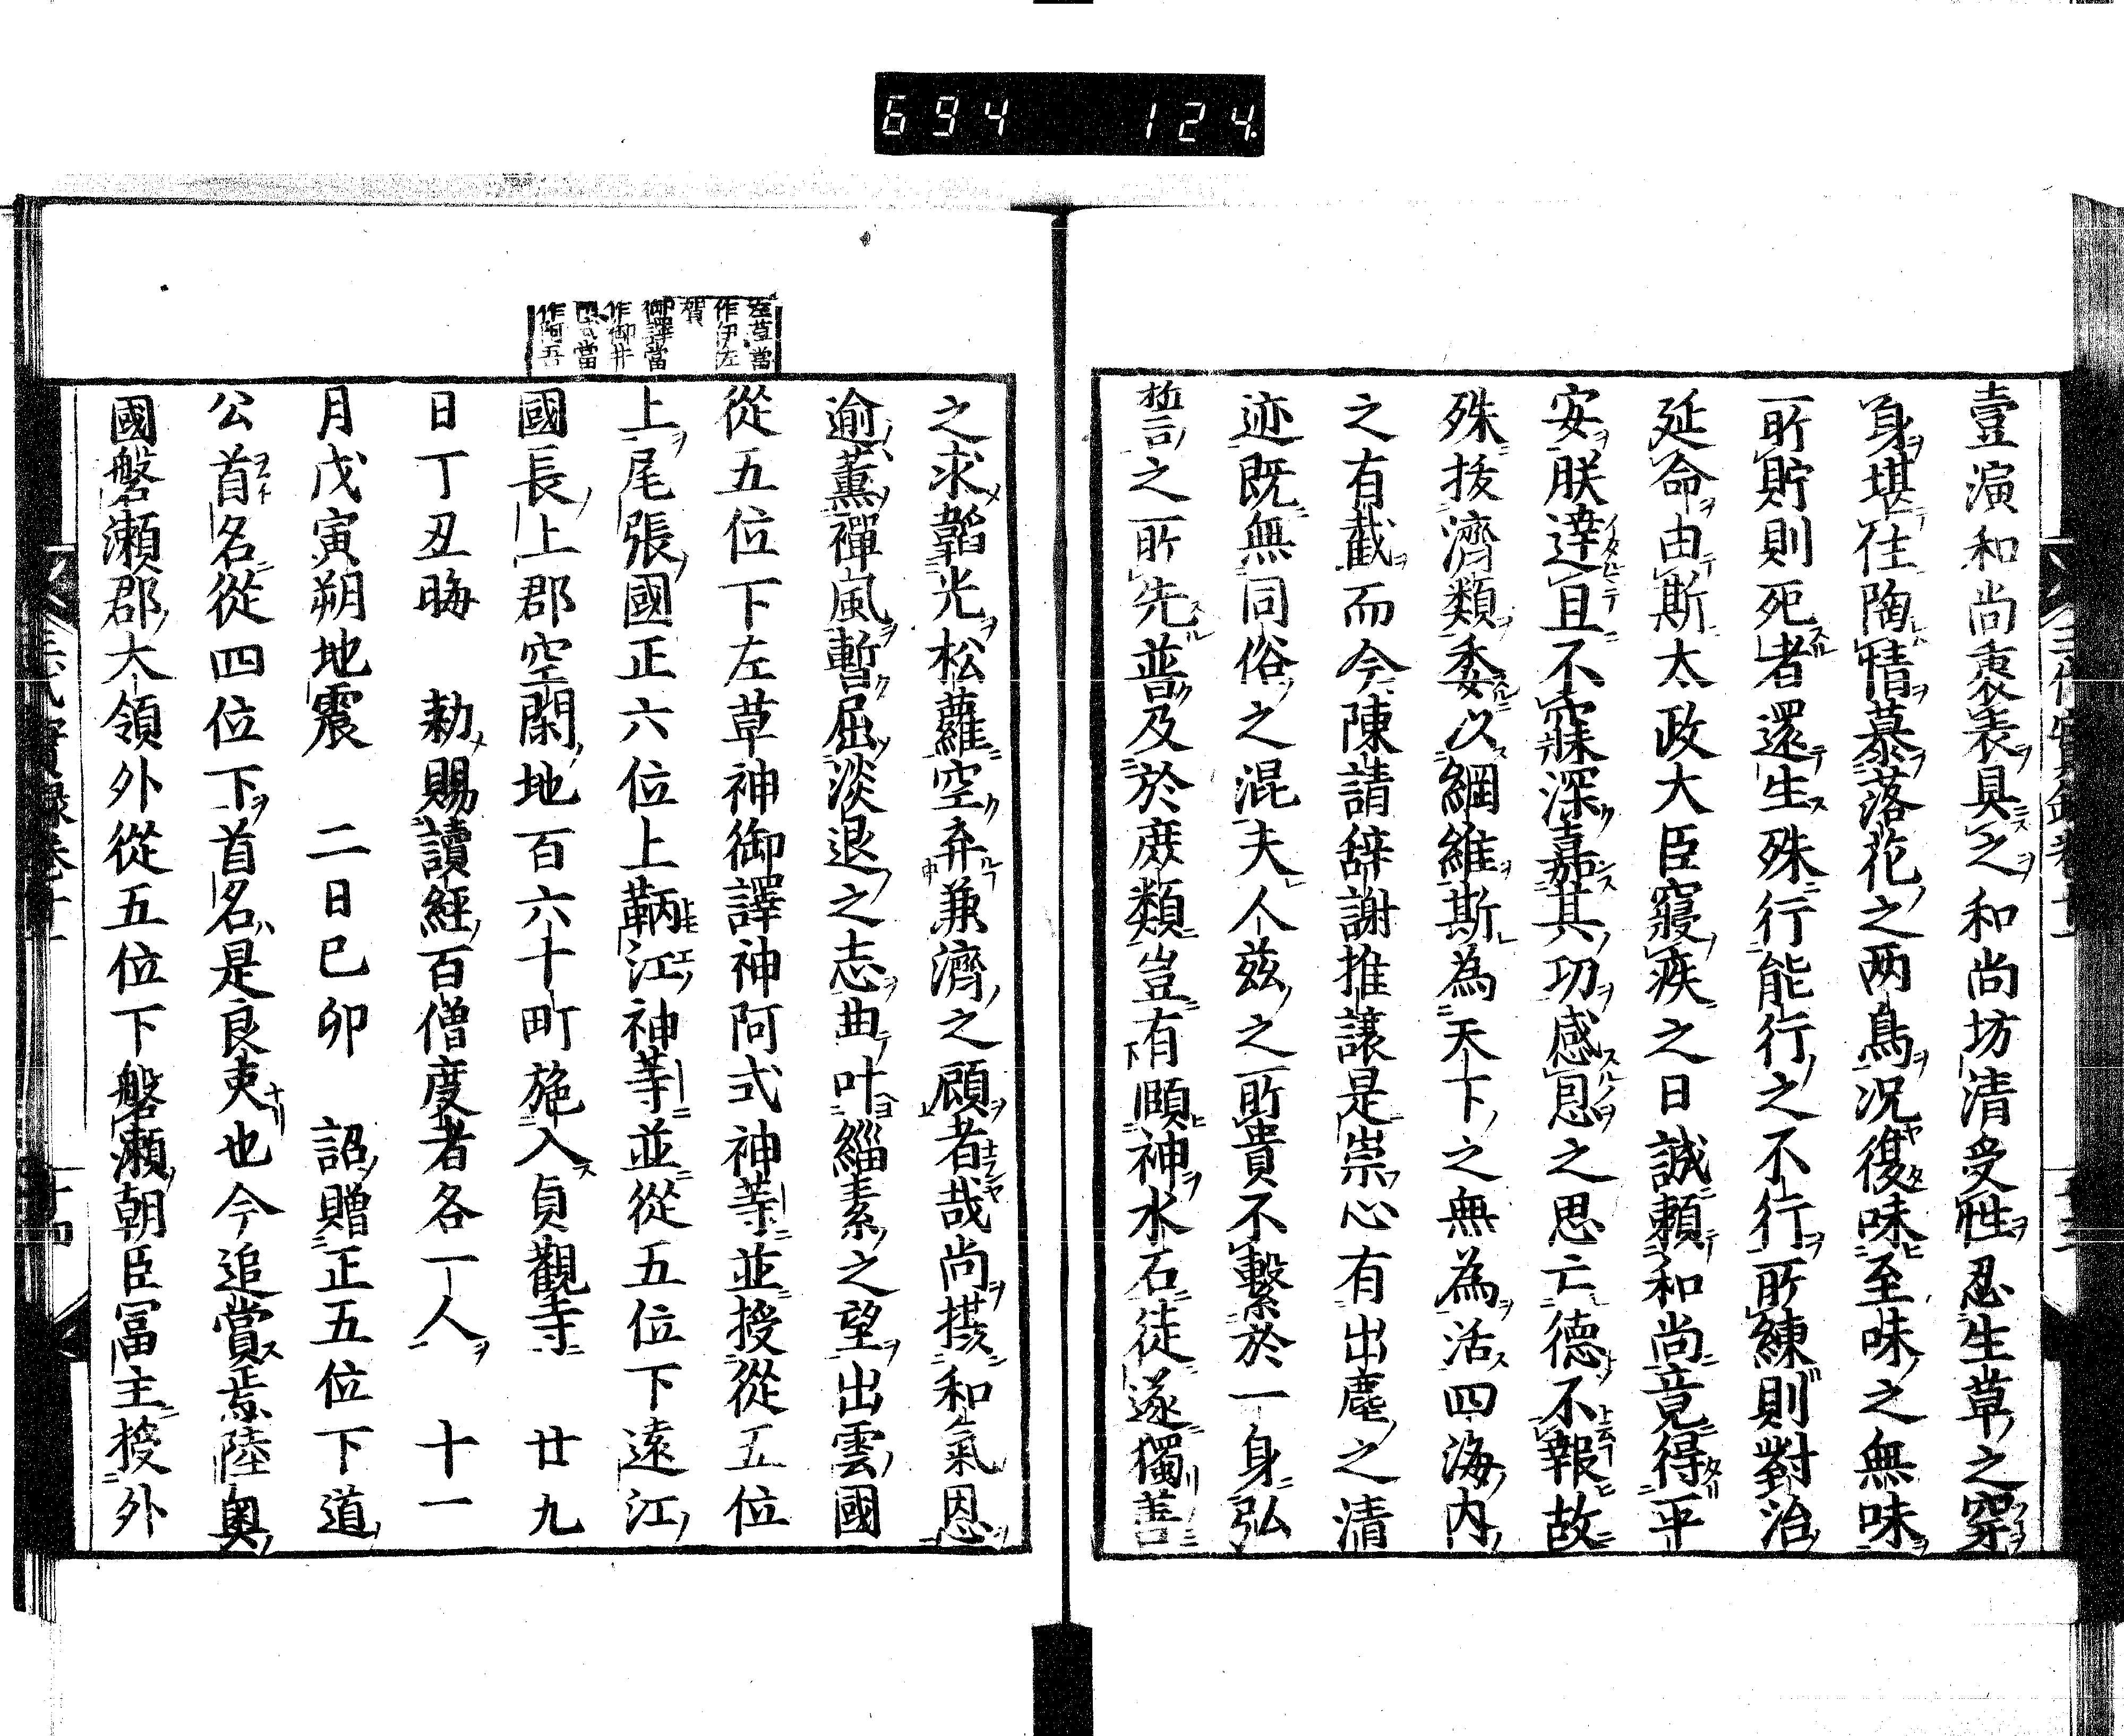 694 124.
壹演和尚裏表具之和尚坊清受性忍生草之穿
身堪任陶情慕落花之両鳥況復味至味之無味
所貯則死者還生殊行能行之不行所練則對治
延命由斯太政大臣寢疾之日誠頼和尚竟得平
安朕達旦不寐深嘉其功感息之思亡德不報故
殊抜濟類委以綱維斯為天下之無為活四海内
之有截而今陳請辞謝推讓是崇心有出塵之清
迹既無同俗之混夫人茲之所貴不繋於一身弘
誓之所先普及於庶類豈有願神水石徒遂獨善
之求韜光松蘿空弃兼濟之顧者哉尚搽和氣恩
逾薫禪風暫屈淡退之志曲叶緇素之望出雲國
從五位下左草神御譯神阿式神等並授從五位
上尾張國正六位上鞆江神等並從五位下遠江
國長上郡空閑地百六十町施入貞觀寺 廿九
日丁丑晦 勅賜讀經百僧度者各一人 十一
月戊寅朔地震 二日己卯 詔贈正五位下道
公首名從四位下首名是良吏也今追賞焉陸奥
國磐瀬郡大領外從五位下磐瀬朝臣冨主授外
左草當
作伊左
賀
御譯當
作御井
阿式當
作阿吾